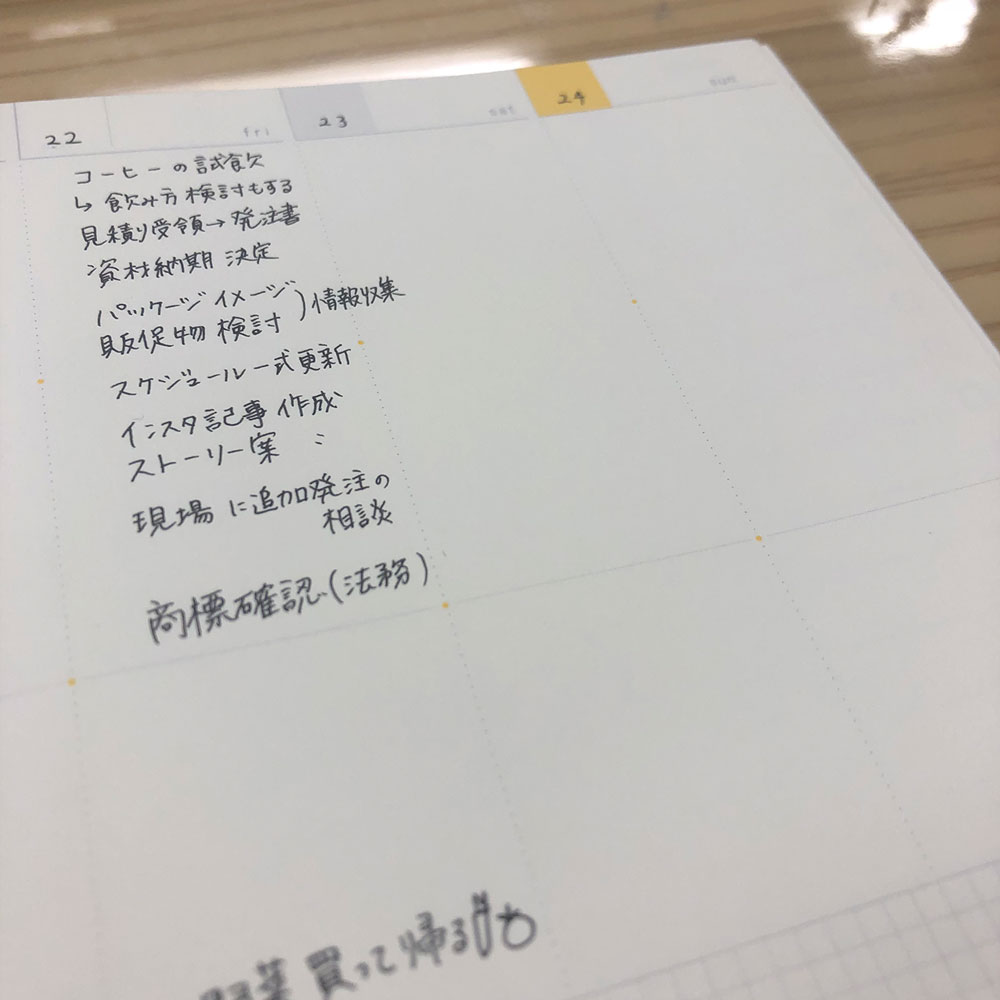 22 fri
23 sat
24 sun
コーヒーの試飲
↳ 飲み方検討もする
見積り受領→発注書
資材納期 決定
パッケージイメージ
販促物 検討 ) 情報収集
スケジュール一式更新
インスタ記事 作成
ストーリー案 〃
現場に追加発注の
相談
商標確認(法務)
買って帰る